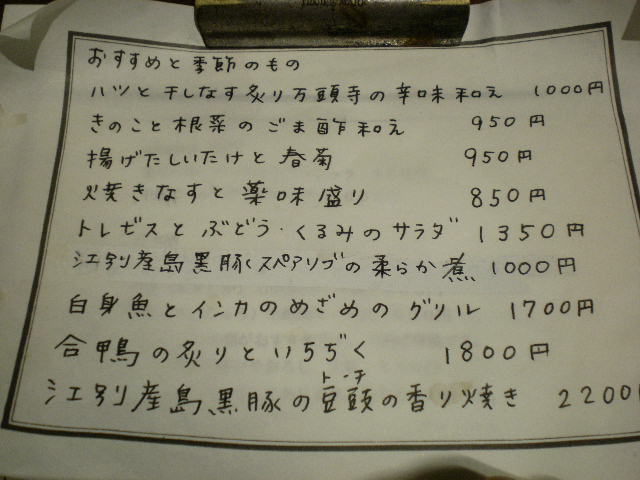 おすすめと季節のもの
ハツと干しなす炙り万頭寺の辛味和え 1000円
きのこと根菜のごま酢和え 950円
揚げたしいたけと春菊 950円
焼きなすと薬味盛り 850円
トレビスとぶどう・くるみのサラダ 1350円
江別産島黒豚スペアリブの柔らか煮 1000円
白身魚とインカのめざめのグリル 1700円
合鴨の炙りといちぢく 1800円
トーチ
江別産島黒豚の豆頭の香り焼き 2200円